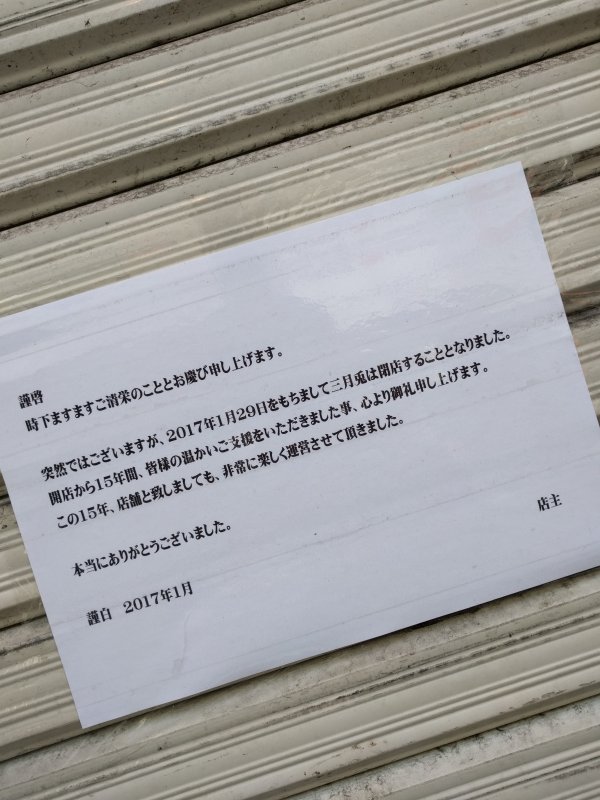 謹啓
時下ますますご清栄のこととお慶び申し上げます。
突然ではございますが、2017年1月29日をもちまして三月兎は閉店することとなりました。
開店から15年間、皆様の温かいご支援をいただきました事、心より御礼申し上げます。
この15年、店舗と致しましても、非常に楽しく運営させて頂きました。
本当にありがとうございました。
店主
謹白 2017年1月